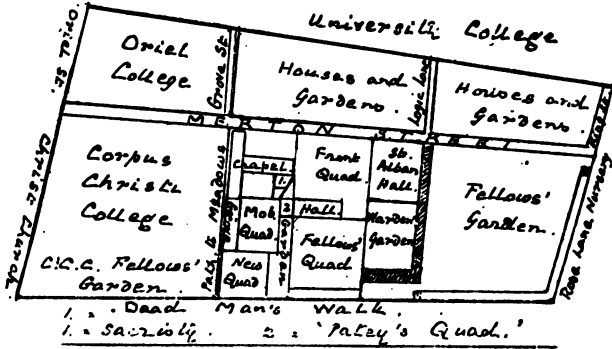 University College
Oriel St.
Oriel
College
Grove St
Houses and
Gardens.
Logic Lane
Houses and
Gardens.
MERTON STREET
Christ Church
Corpus
Christi
College
C.C.C. Fellows'
Garden.
Path to Meadows
Chapel.
1.
Mob
Quad
2
New
Quad
Front
Quad
Hall.
Fellows'
Quad
St.
Alban
Hall.
Warden's
Garden
Fellows'
Garden.
Rose Lane Nursery
Dead Man's Walk.
1. = Sacristy. 2 = 'Patey's Quad.'